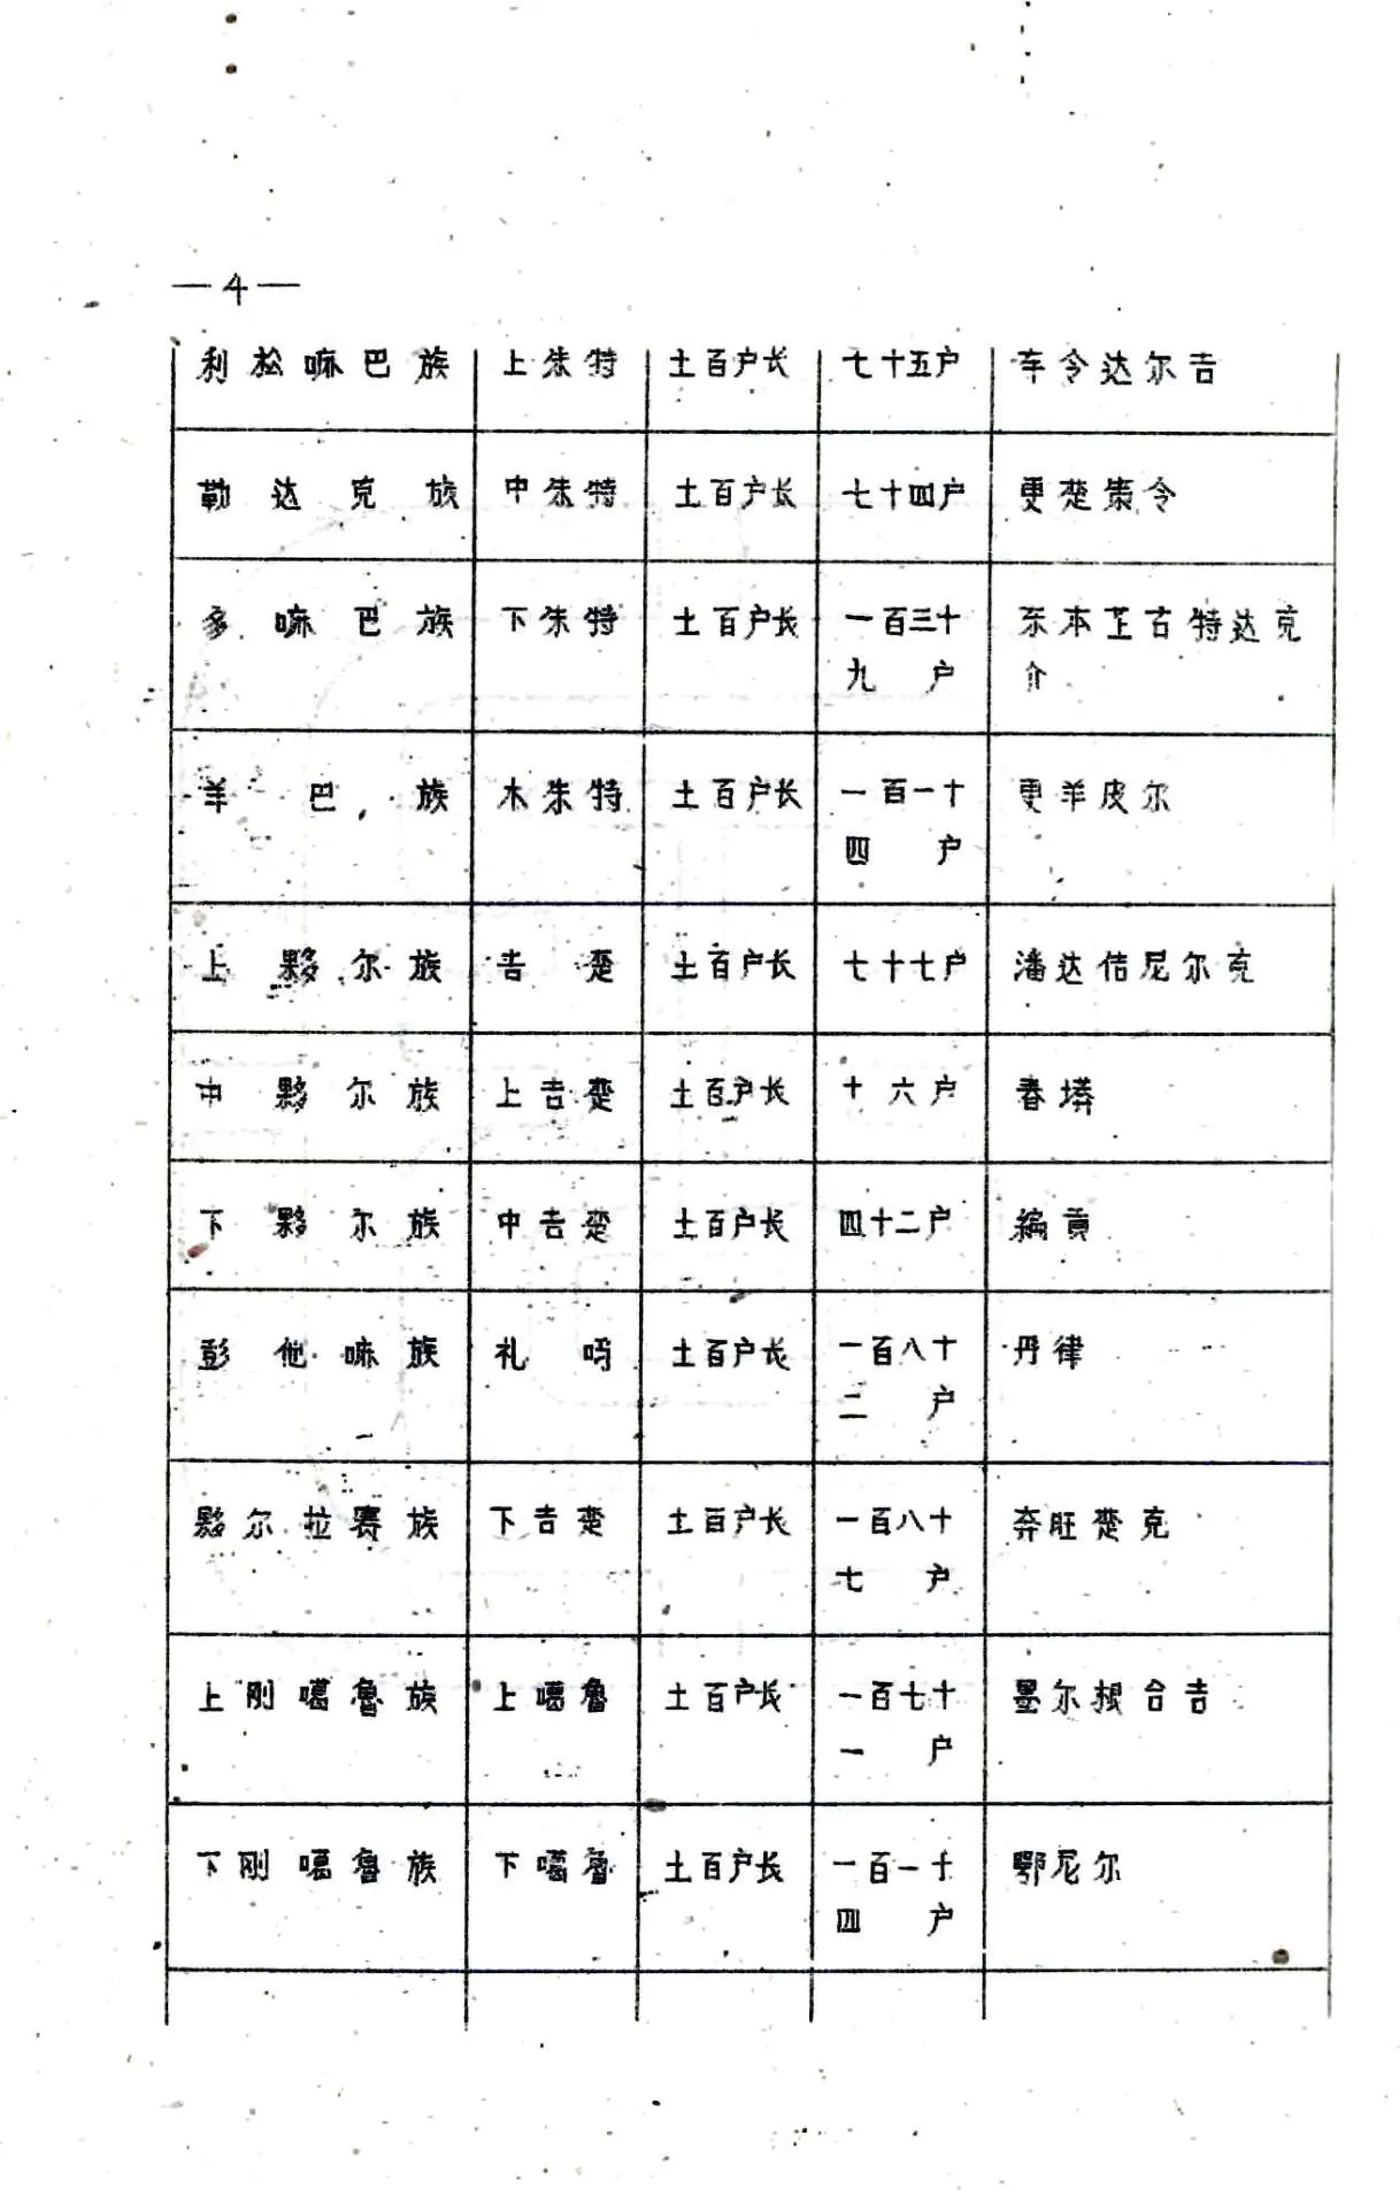 —4—
利松嘛巴族 上朱特 土百户长 七十五户 车令达尔吉
勒达克族 中朱特 土百户长 七十四户 更楚策令
多嘛巴族 下朱特 土百户长 一百三十 东本芷古特达克
九户 介
羊巴族 木朱特 土百户长 一百一十 更羊皮尔
四户
上夥尔族 吉楚 土百户长 七十七户 潘达佶尼尔克
中夥尔族 上吉楚 土百户长 十六户 春塔
下夥尔族 中吉楚 土百户长 四十二户 编贡
彭他嘛族 礼 土百户长 一百八十 丹律
二户
夥尔拉赛族 下吉楚 土百户长 一百八十 奔旺楚克
七户
上刚噶鲁族 上噶鲁 土百户长 一百七十 墨尔根台吉
一户
下刚噶鲁族 下噶鲁 土百户长 一百一十 鄂尼尔
四户